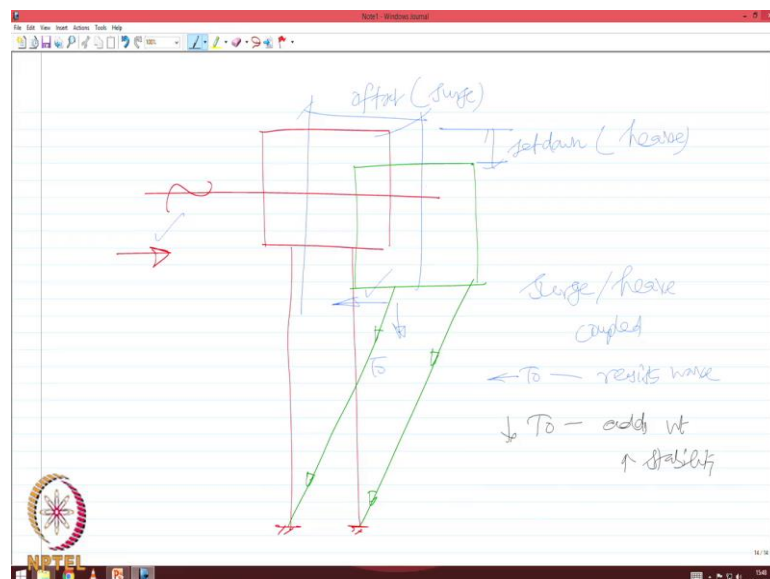 Note1 - Windows Journal
File Edit View Insert Actions Tools Help
100%
offset (surge)
setdown (heave)
surge/heave
coupled
← To — resists wave
↓ To — adds wt
↑ stability
To
NPTEL
14 / 14
15:48